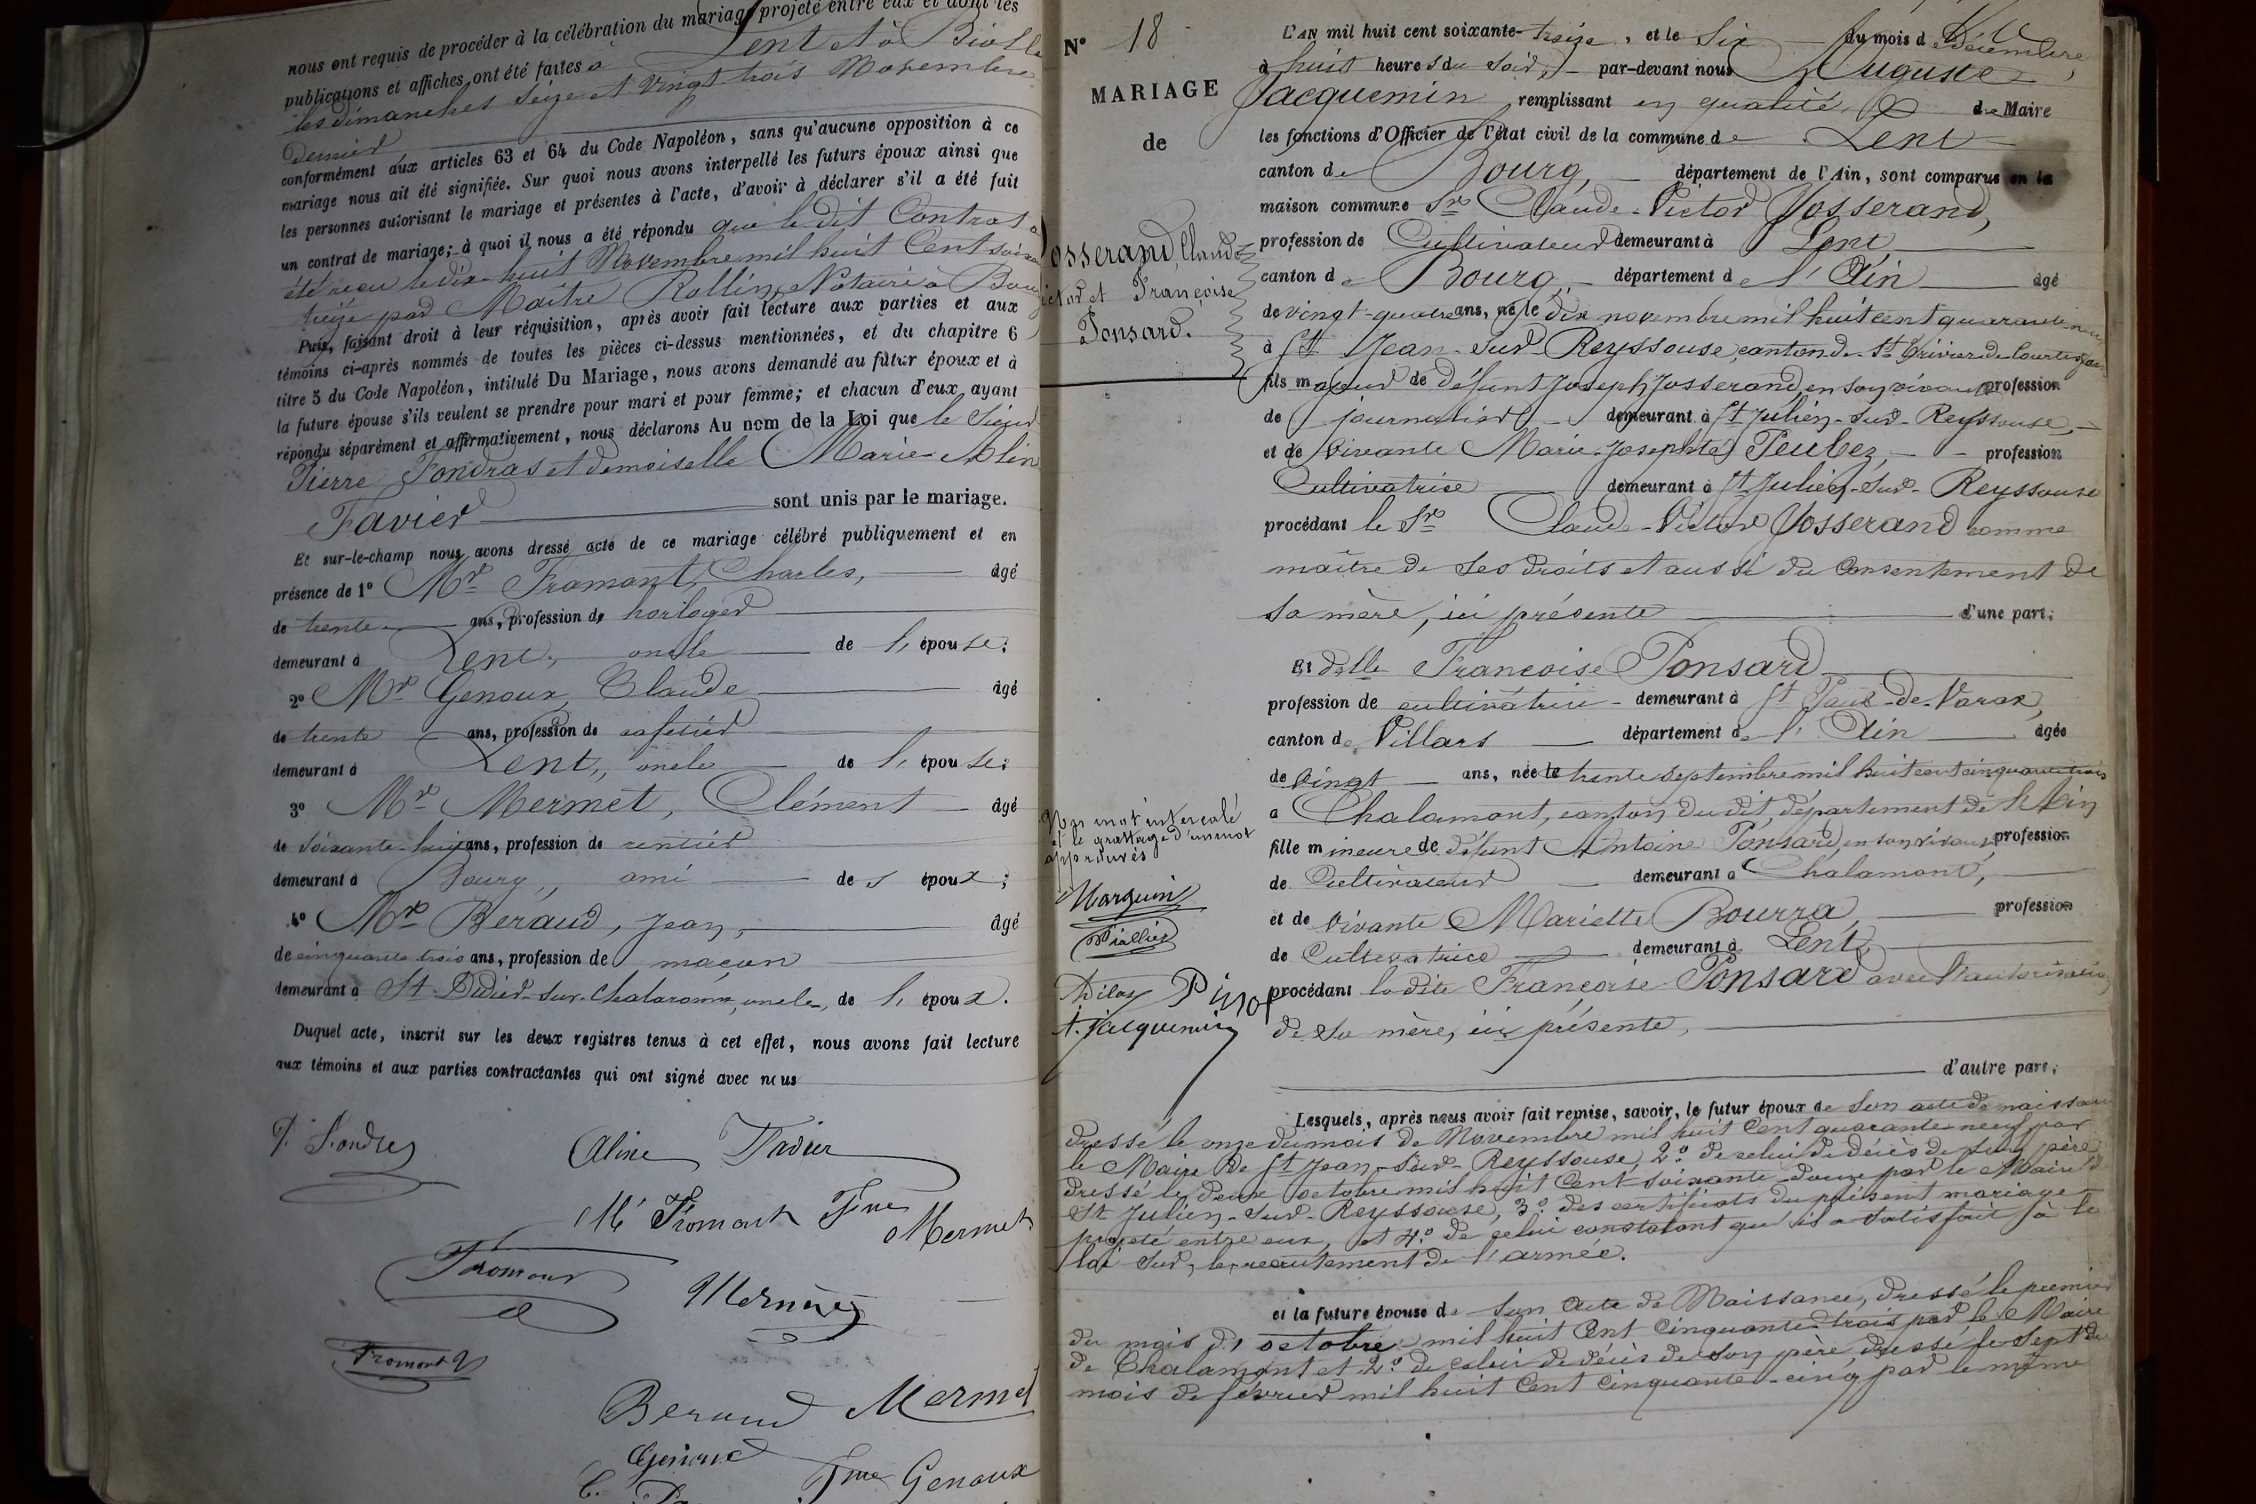 nous ont requis de procéder à la célébration du mariage projeté entre eux et dont les
publications et affiches ont été faites à Lent et à Biolle
les dimanches Seize et Vingt trois Novembre
dernier
conformément aux articles 63 et 64 du Code Napoléon, sans qu'aucune opposition à ce
mariage nous ait été signifiée. Sur quoi nous avons interpellé les futurs époux ainsi que
les personnes autorisant le mariage et présentes à l'acte, d'avoir à déclarer s'il a été fait
un contrat de mariage; à quoi il nous a été répondu que le dit Contrat a
été reçu le dix-huit Novembre mil huit Cent soixa
treize par Maître Rollin, Notaire à Bourg
Puis, faisant droit à leur réquisition, après avoir fait lecture aux parties et aux
témoins ci-après nommés de toutes les pièces ci-dessus mentionnées, et du chapitre 6
titre 5 du Code Napoléon, intitulé Du Mariage, nous avons demandé au futur époux et à
la future épouse s'ils veulent se prendre pour mari et pour femme; et chacun d'eux ayant
répondu séparément et affirmativement, nous déclarons Au nom de la Loi que le Sieur
Pierre Fondras et demoiselle Marie Alin
Favier sont unis par le mariage.
Et sur-le-champ nous avons dressé acte de ce mariage célébré publiquement et en
présence de 1° Mr Fromont, Charles, âgé
de trente ans, profession de horloger
demeurant à Lent, oncle de l'épouse;
2° Mr Genoux, Claude âgé
de trente ans, profession de cafetier
demeurant à Lent, oncle de l'épouse;
3° Mr Mermet, Clément âgé
de soixante-huit ans, profession de rentier
demeurant à Bourg, ami des époux;
4° Mr Béraud, Jean, âgé
de cinquante trois ans, profession de maçon
demeurant à St Didier-sur-Chalaronne, oncle, de l'époux.
Duquel acte, inscrit sur les deux registres tenus à cet effet, nous avons fait lecture
aux témoins et aux parties contractantes qui ont signé avec nous
P. Fondras
Aline Favier
M' Fromont Fme Mermet
Fromont
Mermet
Fromont
Beraud Mermet
Genoux
Fme Genoux
N° 18
MARIAGE
de
Josserand, Claude
Victor et Françoise
Ponsard.
Un mot intercalé
et le grattage d'un mot
approuvés
Marguin
Piallier
Pinot
A. Jacquemin
L'AN mil huit cent soixante-treize, et le Six du mois de Décembre,
à huit heures du soir, par-devant nous Auguste
Jacquemin remplissant en qualité de Maire
les fonctions d'Officier de l'état civil de la commune de Lent
canton de Bourg, département de l'Ain, sont comparus en la
maison commune Sr Claude-Victor Josserand,
profession de Cultivateur demeurant à Lent
canton de Bourg, département de l'Ain âgé
de vingt-quatre ans, né le dix novembre mil huit cent quarante neuf
à St Jean-sur-Reyssouse, canton de St Trivier de Courtes, Ain
fils majeur de défunt Joseph Josserand en son vivant profession
de journalier demeurant à St Julien-sur-Reyssouse,
et de vivante Marie Josephte Peubez, profession
Cultivatrice demeurant à St Julien-sur-Reyssouse
procédant le Sr Claude-Victor Josserand comme
maître de ses droits et aussi du consentement de
sa mère, ici présente d'une part;
Et dlle Françoise Ponsard
profession de cultivatrice demeurant à St Paul-de-Varax,
canton de Villars département de l'Ain âgée
de vingt ans, née le trente septembre mil huit cent cinquante trois
à Chalamont, canton du dit, département de l'Ain
fille mineure de défunt Antoine Ponsard, en son vivant, profession
de Cultivateur demeurant à Chalamont,
et de vivante Mariette Bourra, profession
de Cultivatrice demeurant à Lent,
procédant la dite Françoise Ponsard avec l'autorisation
de sa mère, ici présente,
d'autre part;
Lesquels, après nous avoir fait remise, savoir, le futur époux de Son acte de naissance
dressé le onze du mois de Novembre mil huit Cent quarante neuf par
le Maire de St Jean-sur-Reyssouse, 2° de celui de décès de son père
dressé le deux octobre mil huit Cent soixante-douze par le Maire de
St Julien-sur-Reyssouse, 3° des certificats du présent mariage
projeté entre eux, et 4° de celui constatant qu'il a satisfait à la
loi sur le recrutement de l'armée.
et la future épouse de Son Acte de Naissance, dressé le premier
du mois d'octobre mil huit Cent Cinquante-trois par le Maire
de Chalamont et 2° de celui de décès de son père, dressé le sept du
mois de février mil huit Cent Cinquante-cinq par le même